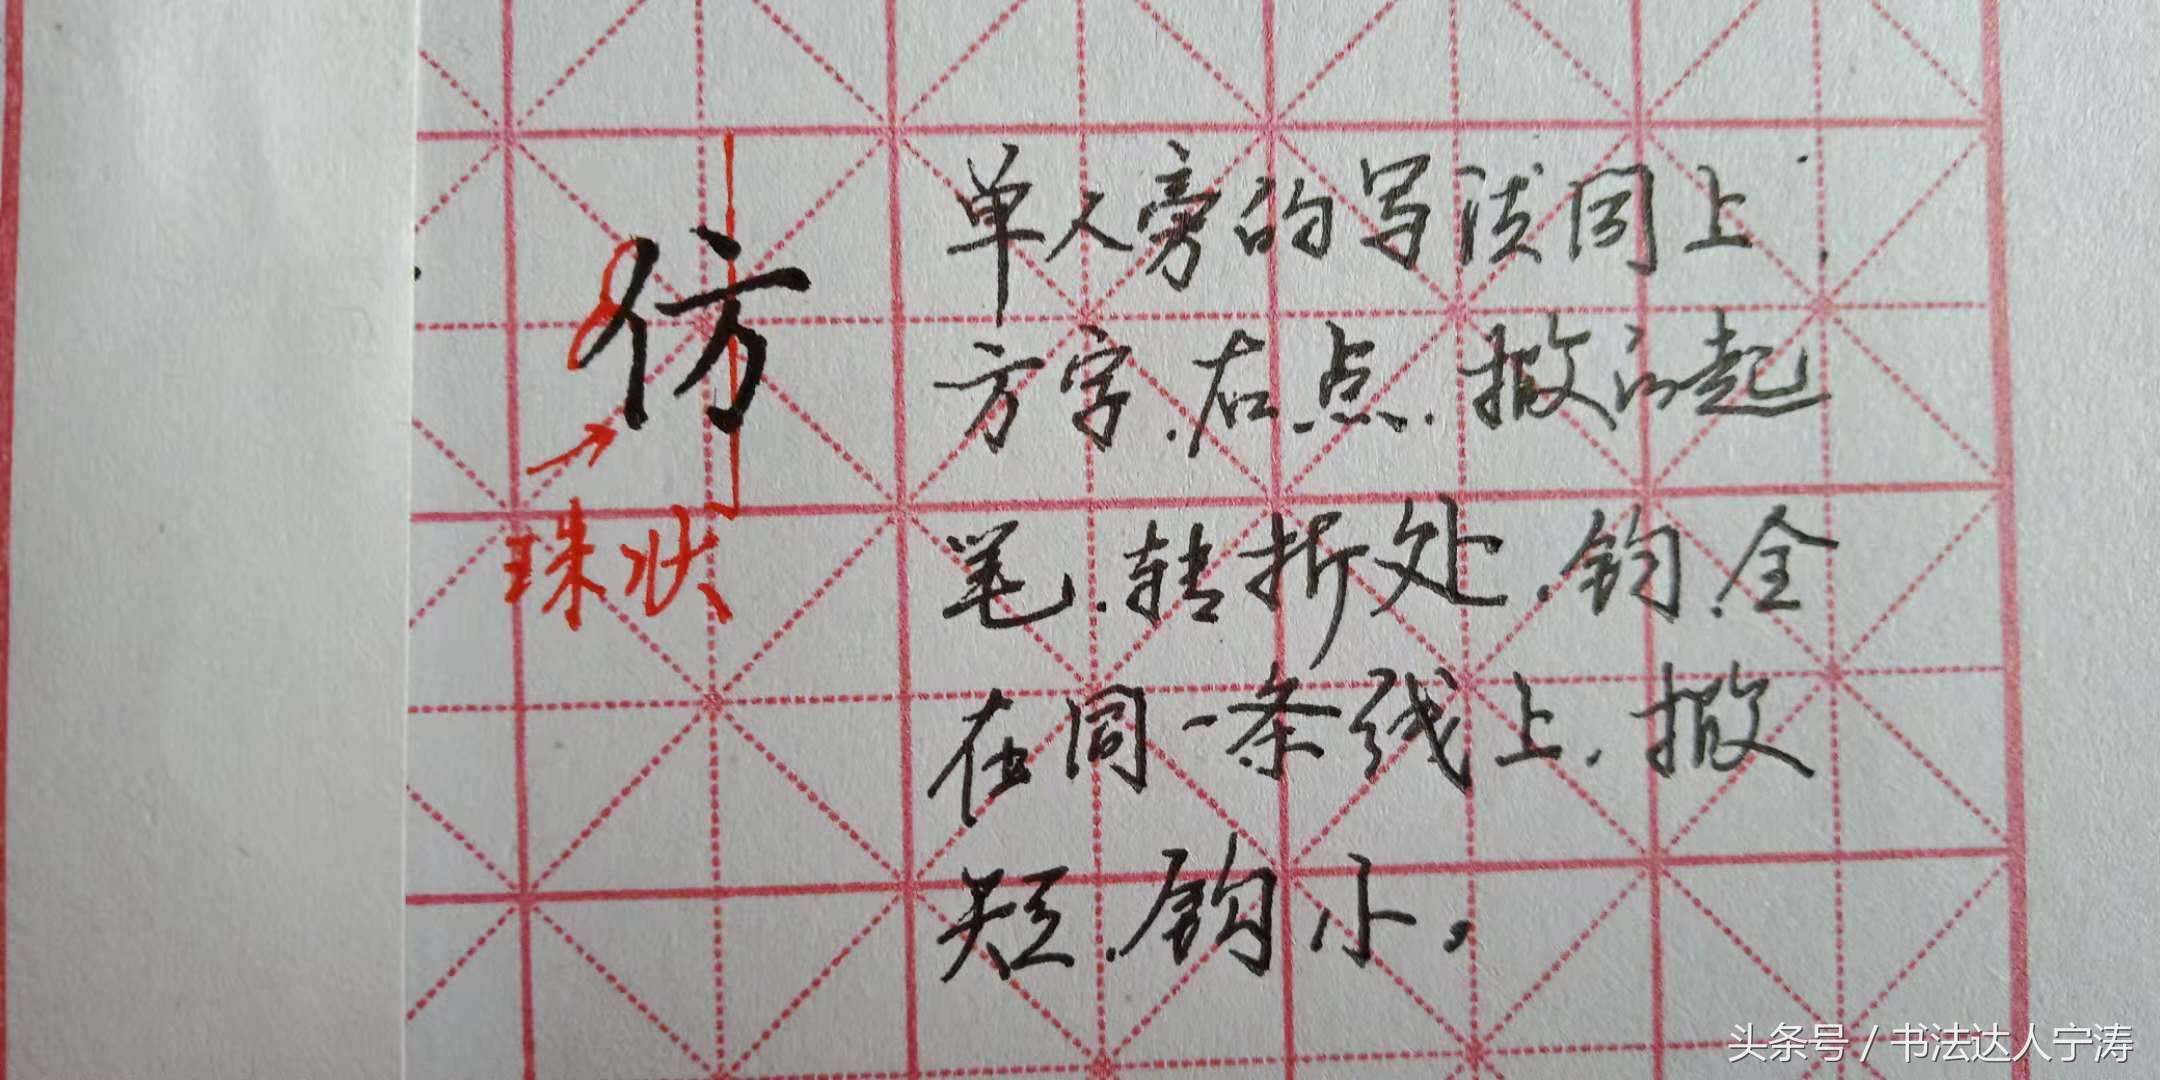 仿
珠状
单人旁的写法同上.
方字.右点.撇的起
笔.转折处.钩.全
在同一条线上.撇
短.钩小。
头条号 / 书法达人宁涛